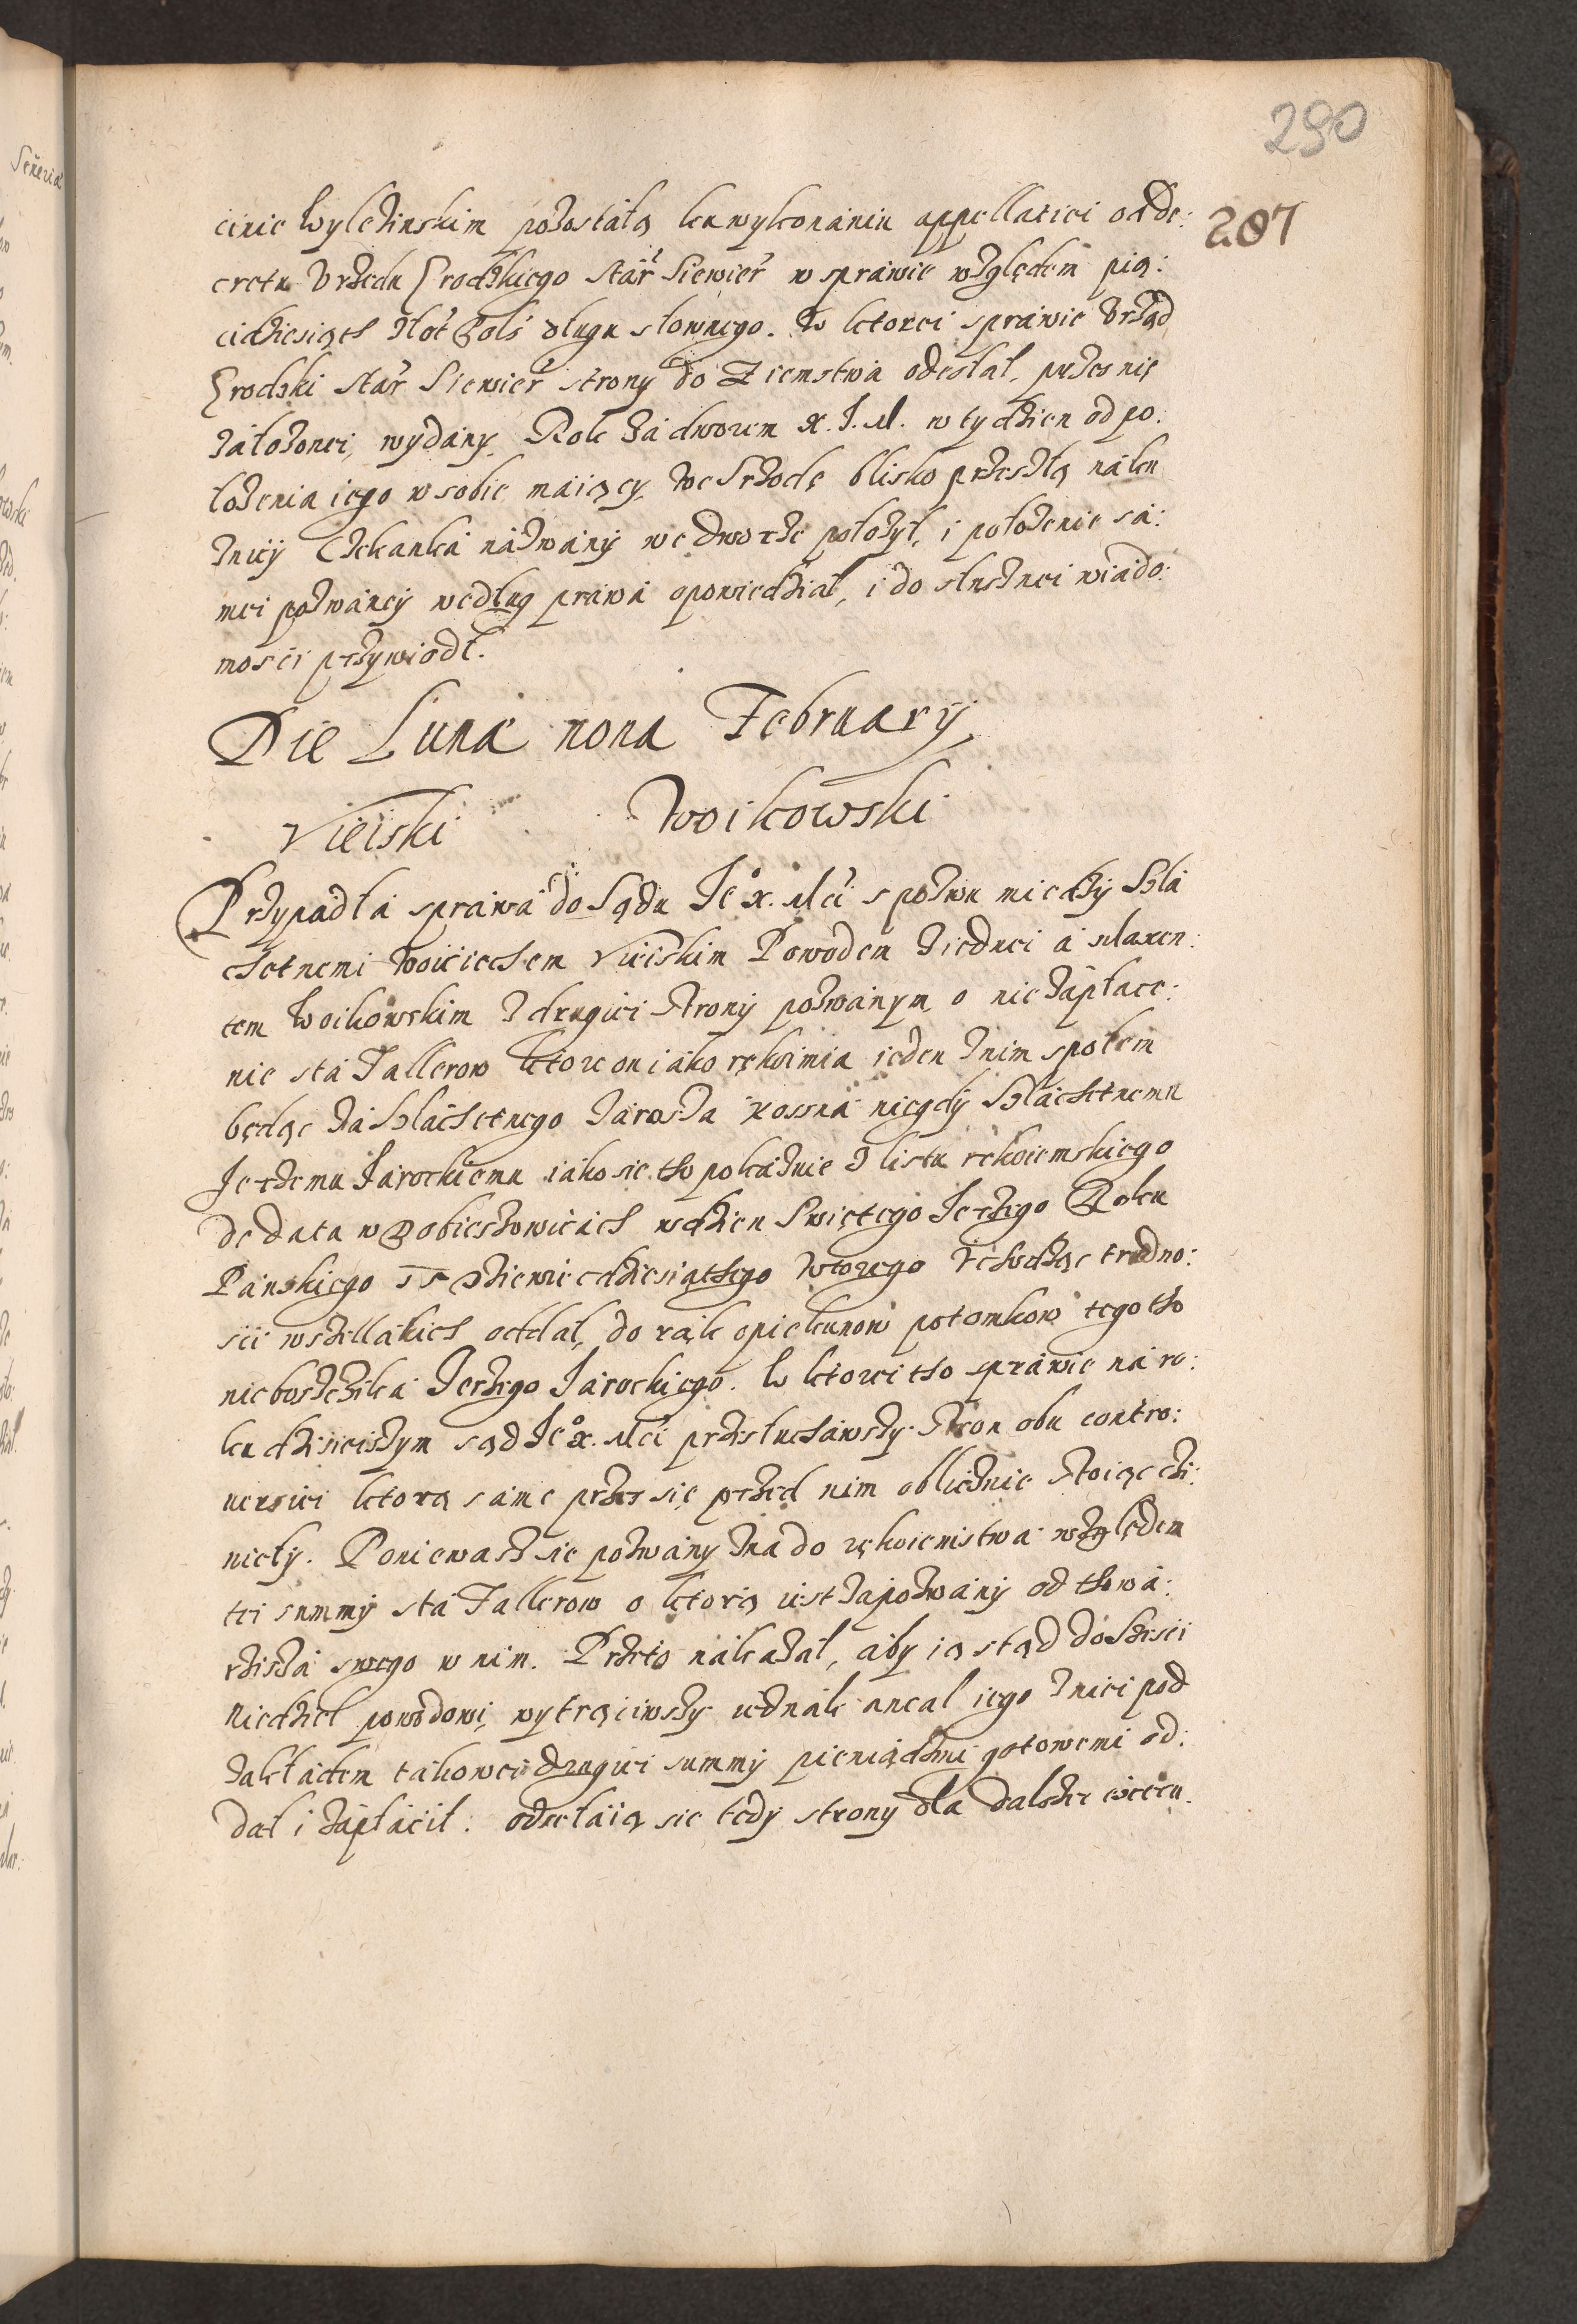 290
207
cinie Wyleżinskim pozostałą ku wykonániu appellatiei od de:
cretu Vrzędu Grodzkiego Stár Siewier w sprawie względem pią:
cidziesiąth Złot Pols długu słownego. W ktorei sprawie Vrząd
Grodzki Stár Siewier strony do Ziemstwa odesłał, przes nię
záłożonei, wydány Rok zá dworem X. J. M. w tydzien od po:
łożenia iego w sobie máiący, we Srzodę blisko przeszłą ná ku
znicy Czekanká názwány we dworze położył, i położenie sá:
mei pozwáney według práwá opowiedział, i do słusznei wiado:
mosci przywiodł.
Die Lunæ nona February
Vieiski Woikowski
Przypadłá spráwá do Sądu Je° X. Mci s pozwu miedzy Szlá
chetnemi Woiciechem Vieiskim Powodem z iednei á Maxen:
tem Woikowskim z drugiei strony pozwánym o niezápłace:
nie stá Tallerow ktore on iáko rękoimia ieden z nim społem
będąc zá Szláchetnego Jarosza Kossná niegdy Szláchetnemu
Jerzemu Járockiemu iáko sie tho pokázuie z listu rękoiemskiego
de data w Bobieszowicách w dzien Swiętego Jerzego Roku
Panskiego 15 dziewiędziesiąthego wtorego zchodząc trudno:
sci wszellákich oddał, do rąk opiekunow potomkow tegotho
nieboszczika Jerzego Járockiego. W ktorei tho spráwie ná ro:
ku dzisieiszym sąd Je° X. Mci przesłuchawszy stron obu contro:
uersiei ktorą sáme przes się przed nim oblicznie stoiąc czi:
nieły. Poniewasz sie pozwány zna do rękoiemstwá względem
tei summy stá Tallerow o ktorą iest zápozwány od thowá:
rziszá swego w nim. Przeto nákazał, áby ią stąd do szesci
niedziel powodowi, wytrąciwszy iednák ancal iego z niei pod
zakładem tákowei drugiei summy pieniądzmi gotowemi od:
dał i zápłácił. odsełáią sie tedy strony dla dalszei